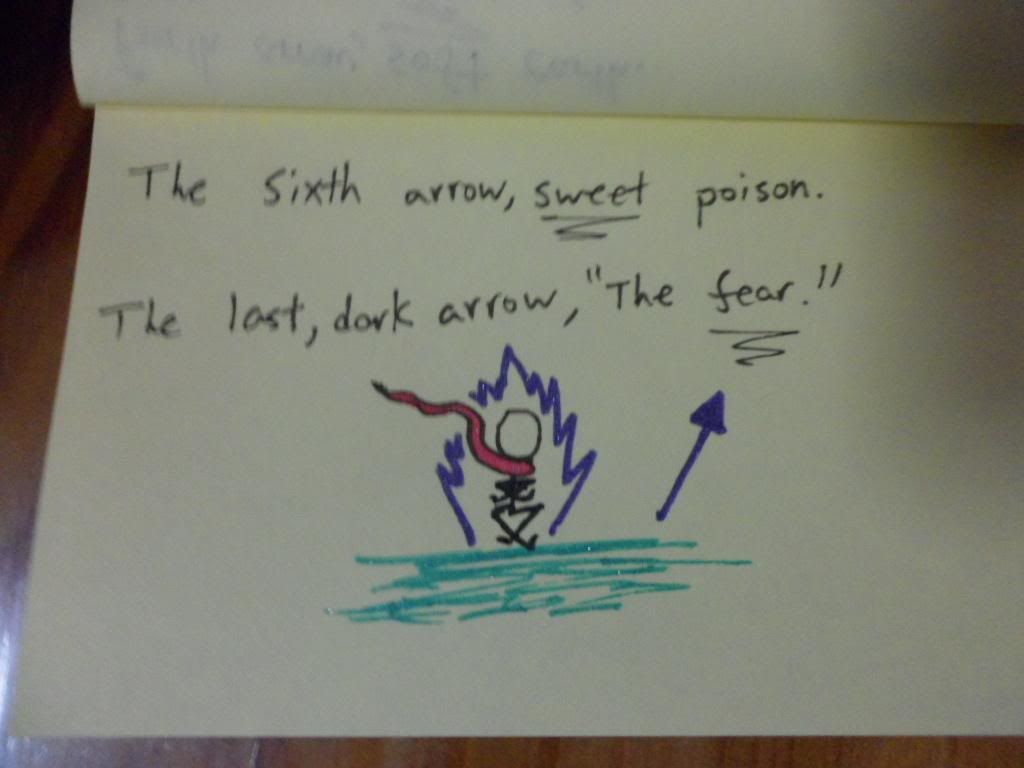 The sixth arrow, sweet poison.
The last, dark arrow, "The fear."